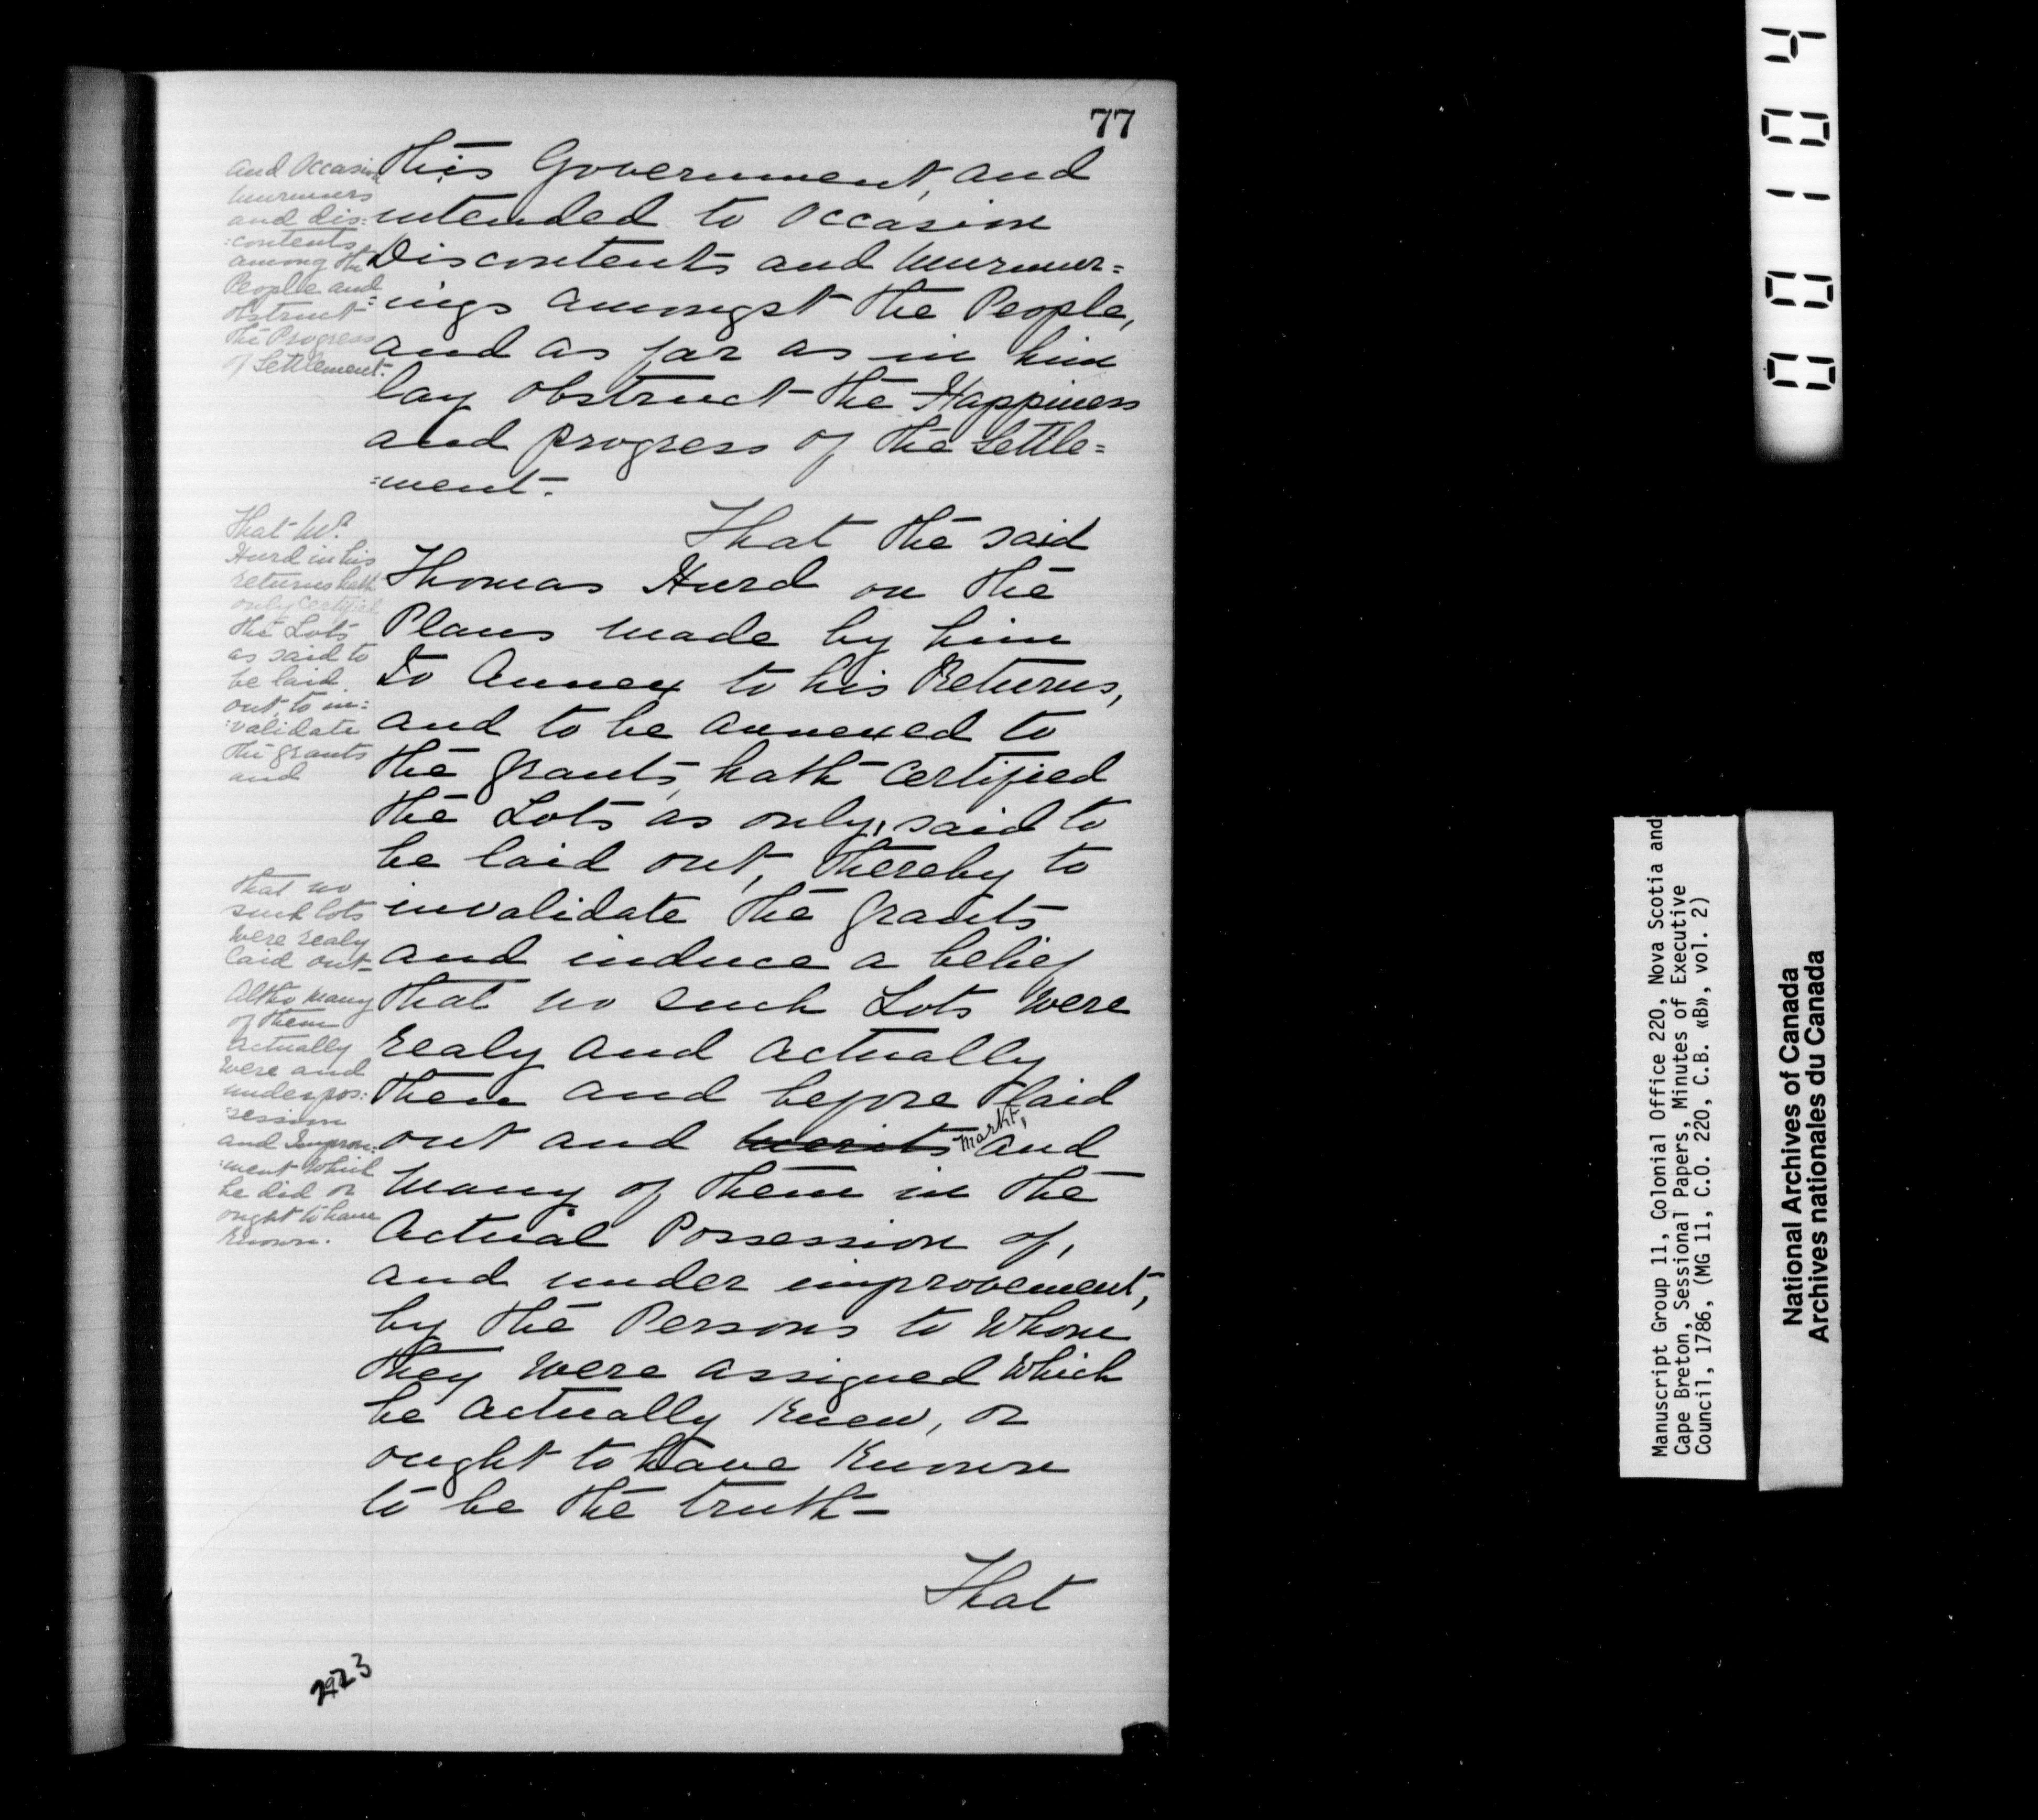 77
this Government, and
intended to Occasion
Discontents and Murmur=
=ings amongst the People,
and as far as in him
lay obstruct the Happiness
and progress of the Settle=
=ment.
That the said
Thomas Hurd on the
Plans made by him
To Annex to his Returns,
and to be annexed to
the grants, hath certified
the Lots as only, said to
be laid out, thereby to
invalidate the grants
and induce a belief
that no such Lots were
realy and actually
then and before laid
out and merits markt, and
many of them in the
Actual Possession of,
and under improvement,
by the Persons to Whom
they were assigned Which
he actually knew, or
ought to have known
to be the truth—
That
and Occasion
Murmurs
and dis=
=contents
among the
People and
obstruct
the Progress
of Settlement.
That Mr.
Hurd in his
returns hath
only certified
the Lots
as said to
be laid
out, to in=
=validate
the grants
and
that no
such lots
were realy
laid out
Altho many
of them
actually
were and
under pos=
=session
and Improve=
=ment which
he did or
ought to have
known.
2923
00104
Manuscript Group 11, Colonial Office 220, Nova Scotia and
Cape Breton, Sessional Papers, Minutes of Executive
Council, 1786, (MG 11, C.O. 220, C.B. «B», vol. 2)
National Archives of Canada
Archives nationales du Canada